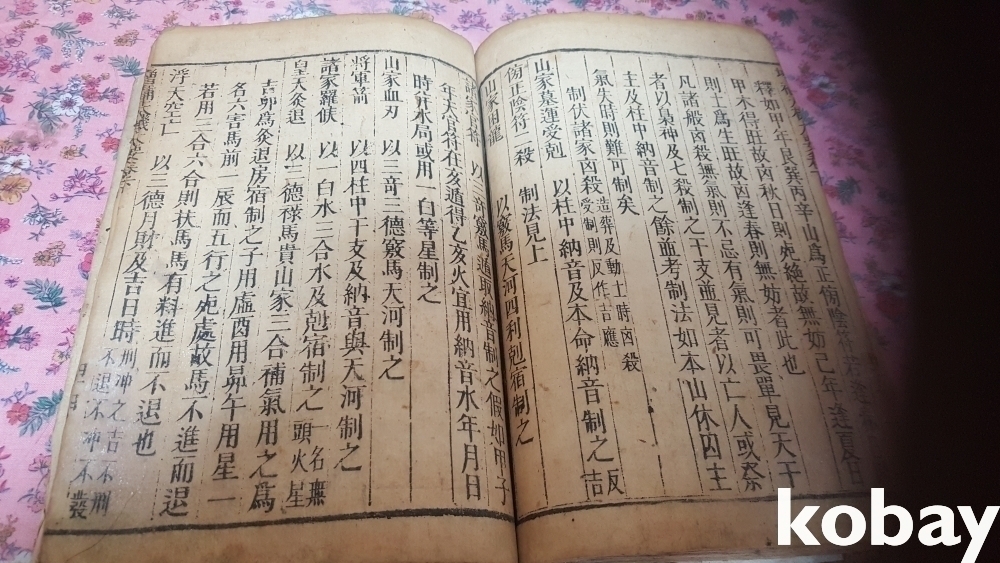 釋如甲年艮巽丙辛山爲正傍陰符若逢
甲木得旺故凶秋日則死絶故無妨己年逢夏日
則土爲生旺故凶逢春則無妨者此也
凡諸般凶殺無氣則不忌有氣則可畏單見天干
者以梟神及七殺制之干支並見者以亡人或祭
主及柱中納音制之餘並考制法如本山休囚主
氣失時則難可制矣 造葬及動土時凶殺受制則反作吉應
制伏諸家凶殺 以柱中納音及本命納音制之 反吉
山家墓運受剋
傍正陰符二殺 制法見上
山家困龍 以竅馬天河四利剋宿制之
以三奇竅馬遁取納音制之假如甲子
年天官符在亥遁得乙亥火宜用納音水年月日
時并水局或用一白等星制之
山家血刃 以三奇三德竅馬天河制之
將軍箭 以四柱中干支及納音與天河制之
諸家羅睺 以一白水三合水及剋宿制之 一名無頭火星
皇天灸退 以三德祿馬貴山家三合補氣用之爲
吉卯爲灸退房宿制之子用虛酉用昴午用星一
名六害馬前一辰而五行之死處故馬不進而退
若用三合六合則扶馬馬有料進而不退也
浮天空亡 以三德月財及吉日時 刑冲之吉不刑不退不冲不發
kobay